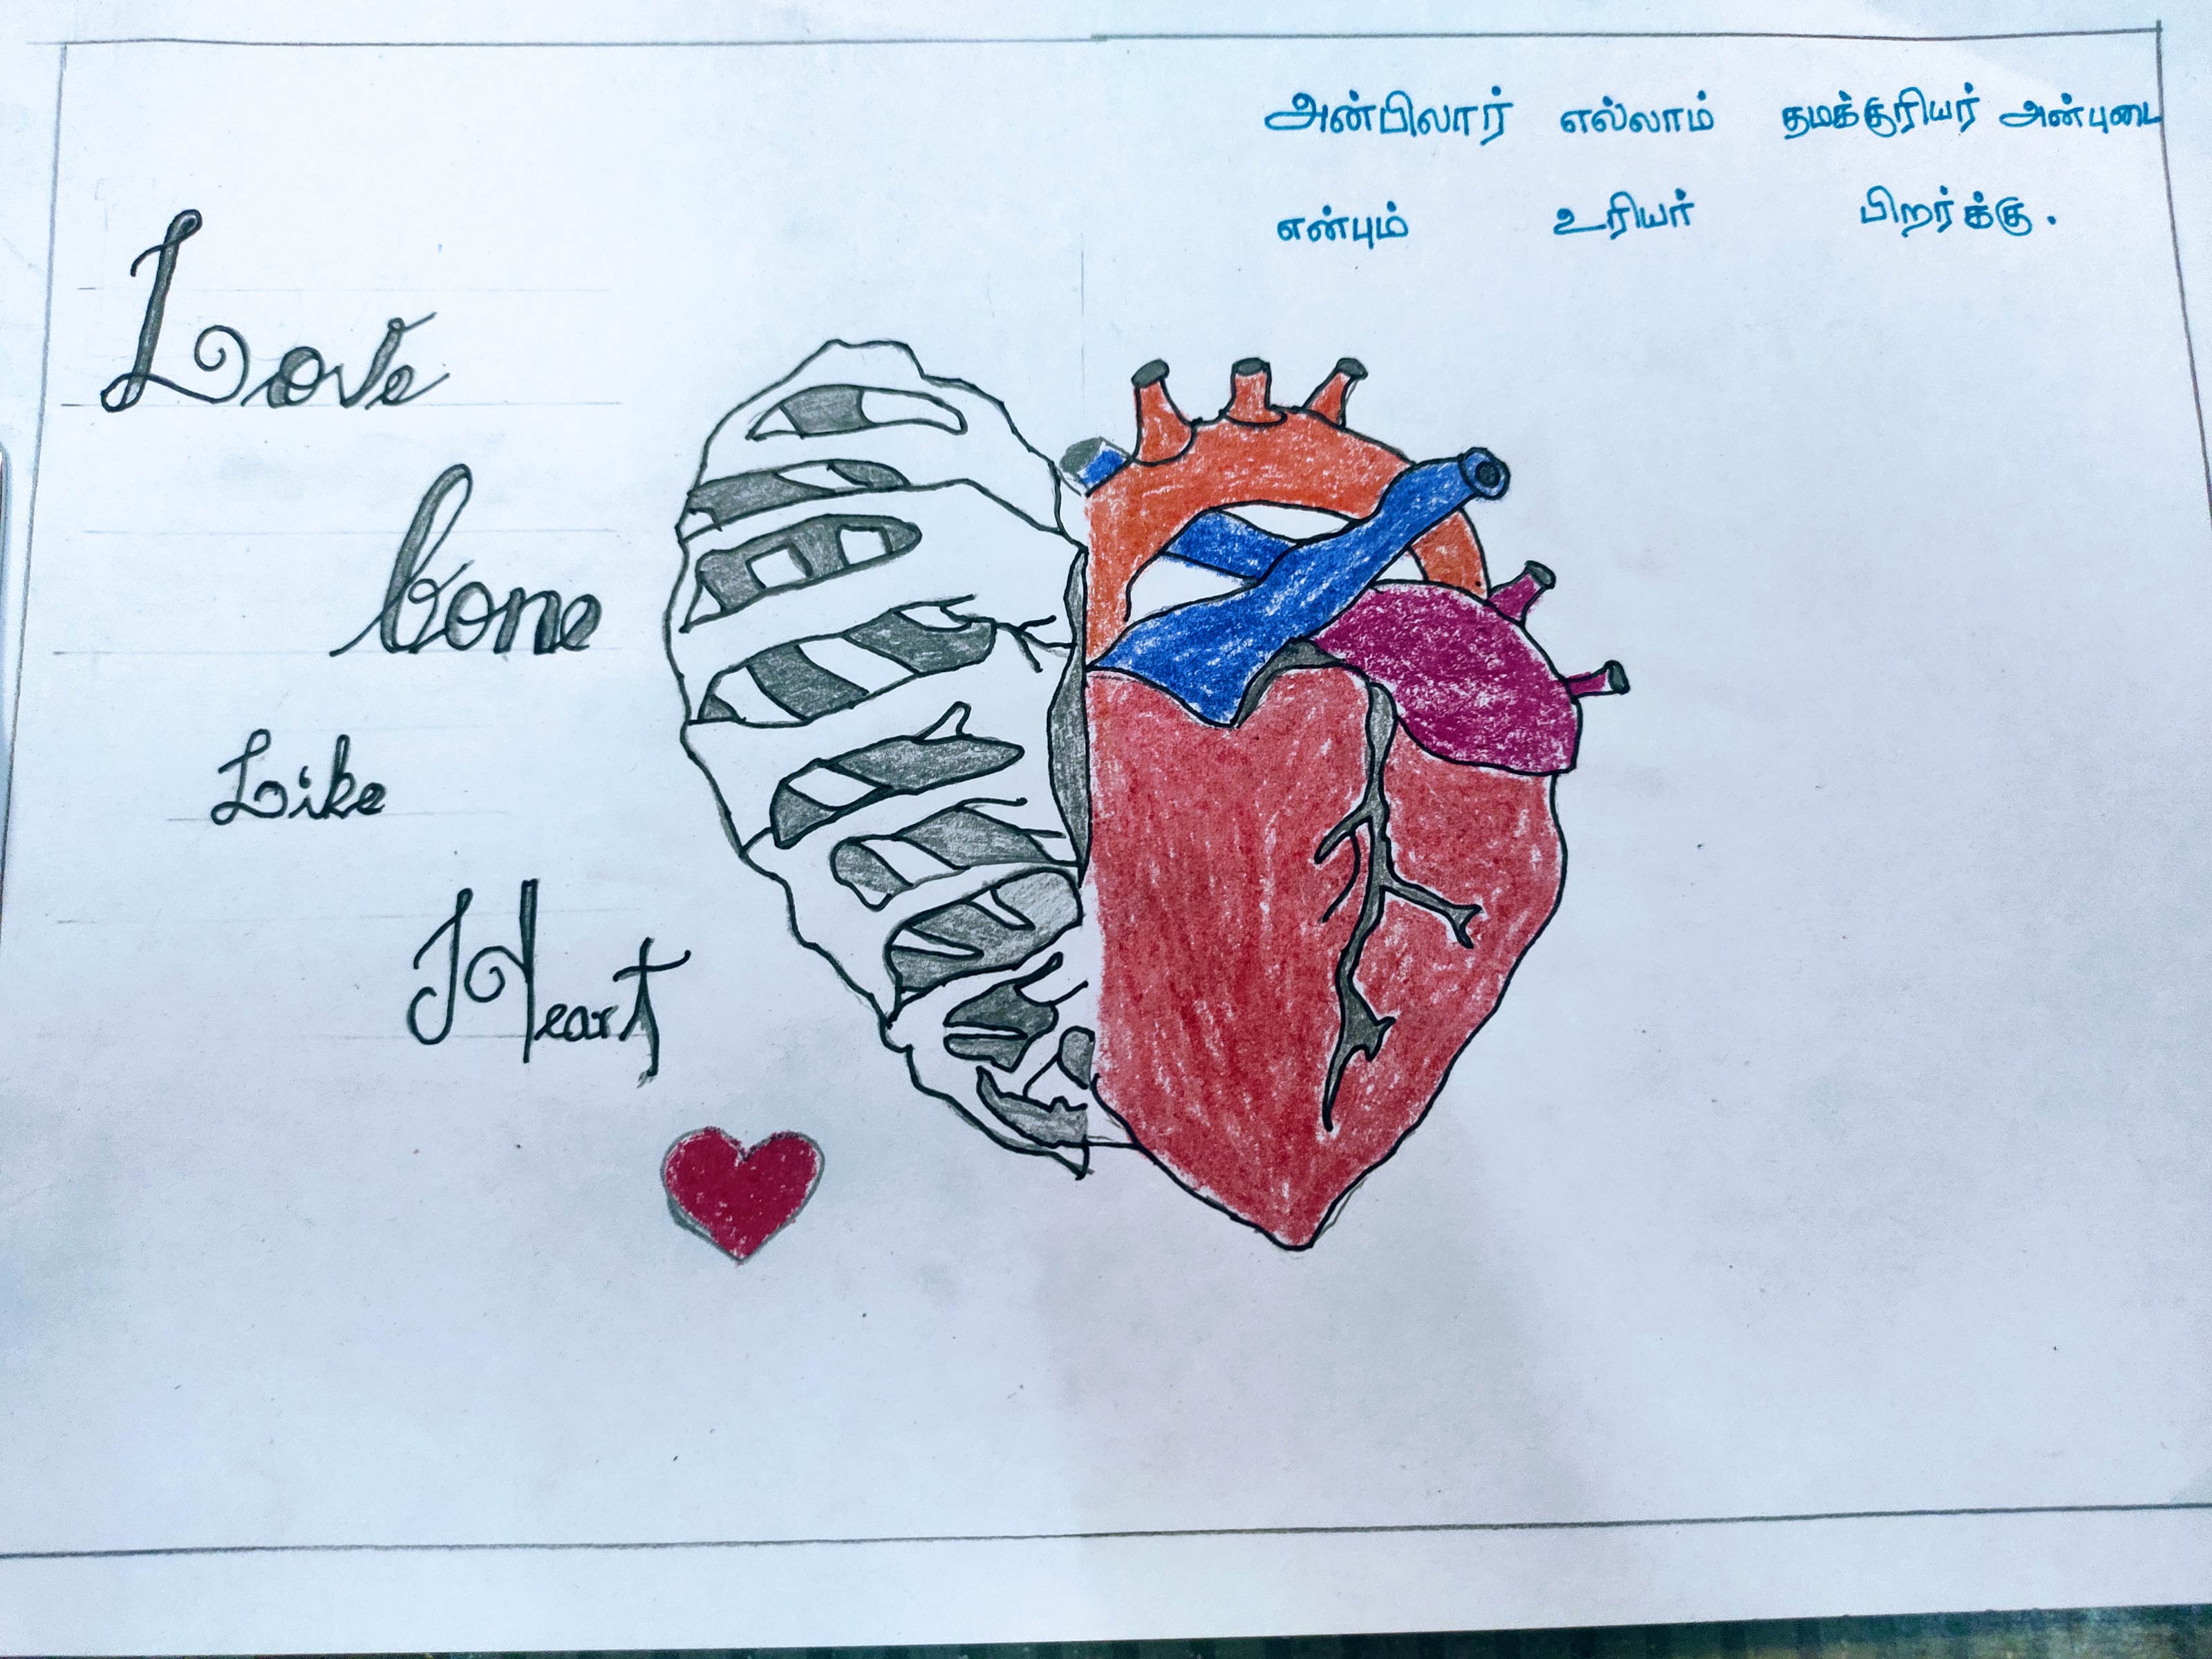 அன்பிலார் எல்லாம் தமக்குரியர் அன்புடை
என்பும் உரியர் பிறர்க்கு.
Love
bone
Like
Heart